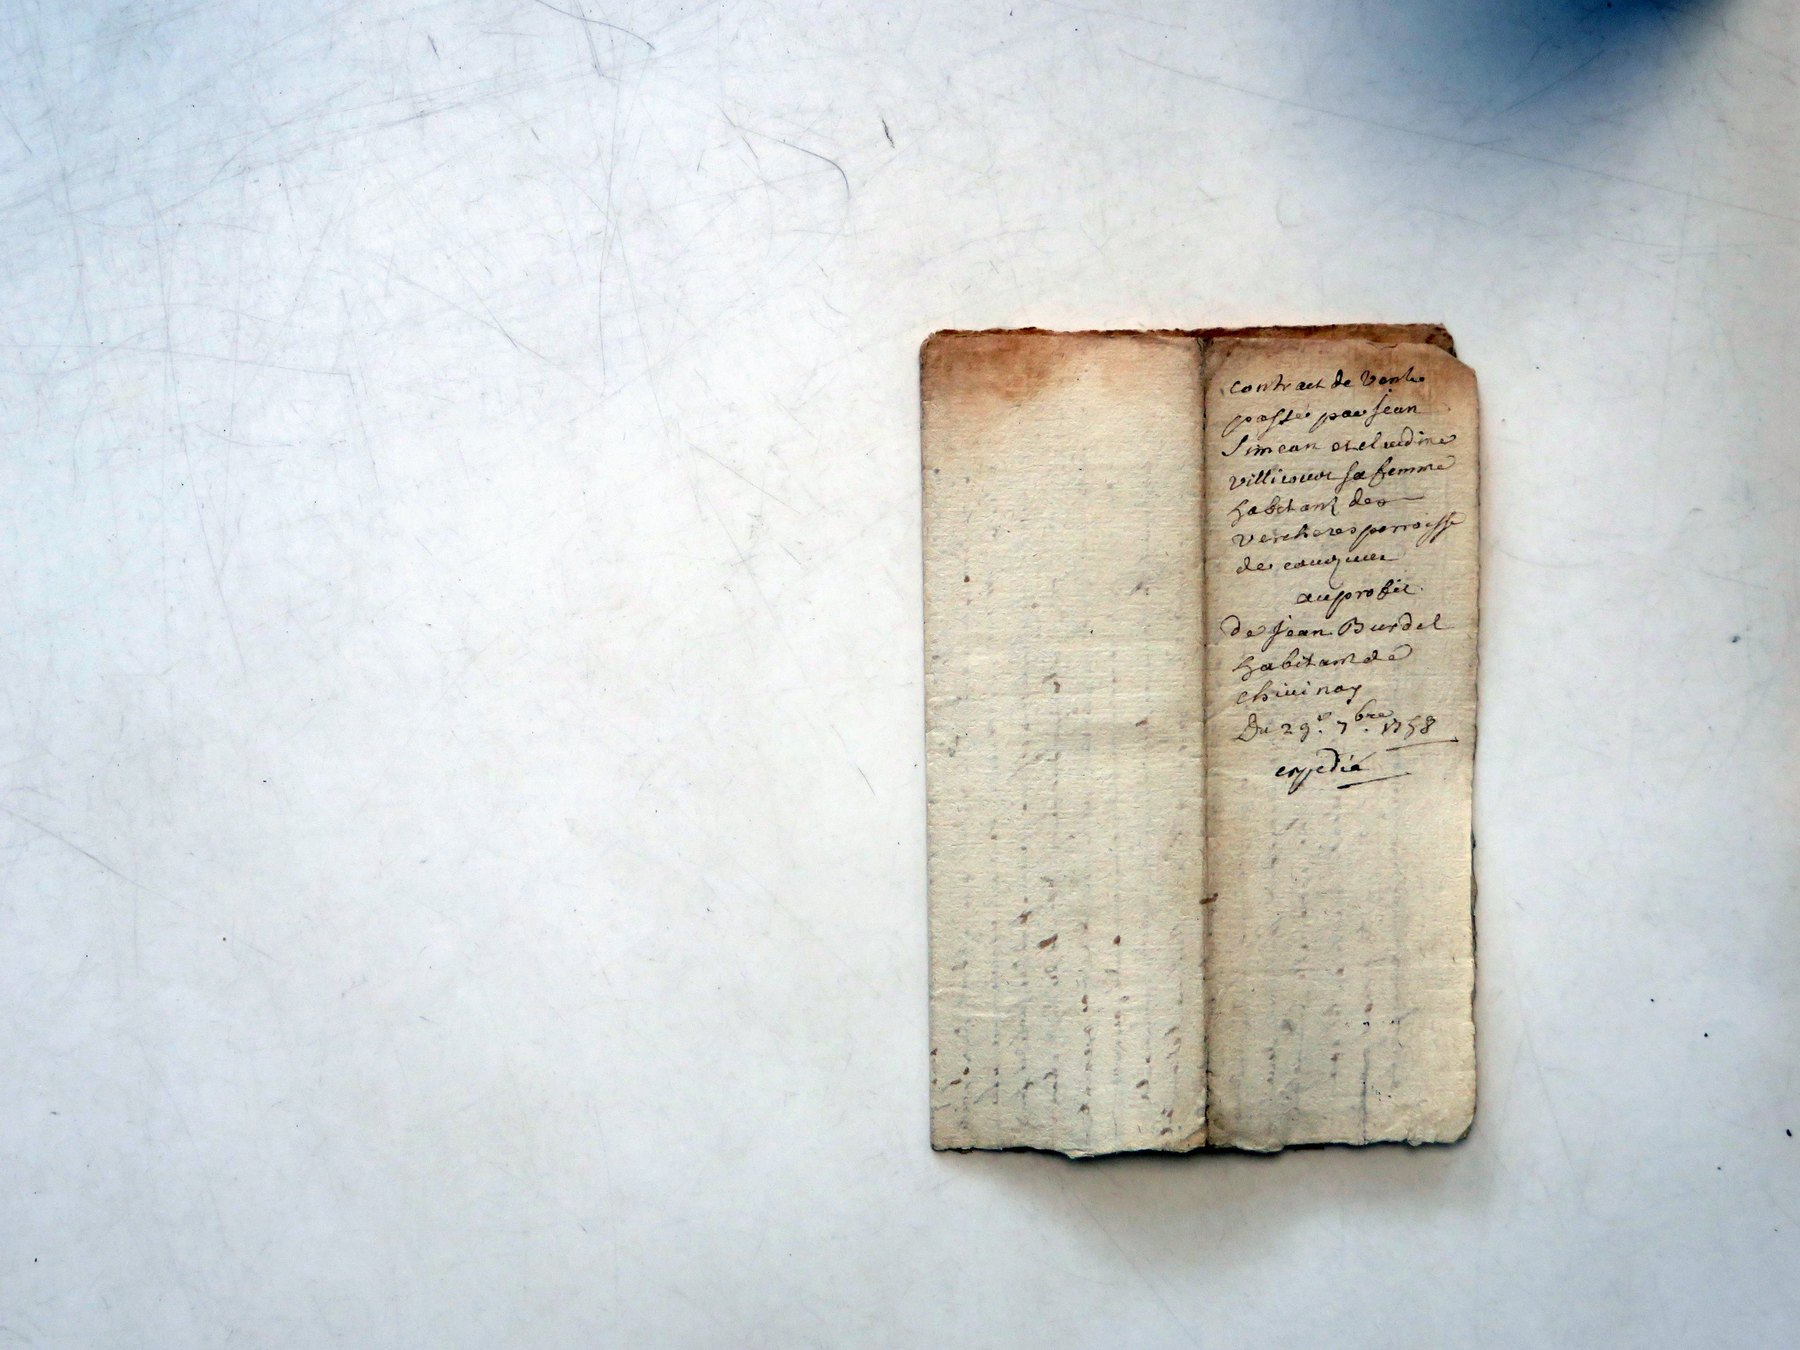 contract de vente
passé par Jean
Simean et cludine
villicour sa femme
habitant des
vercheres parroisse
de
au profit
de Jean Burdel
habitant de
chivinay
Du 29.e 7.bre 1758
expédié